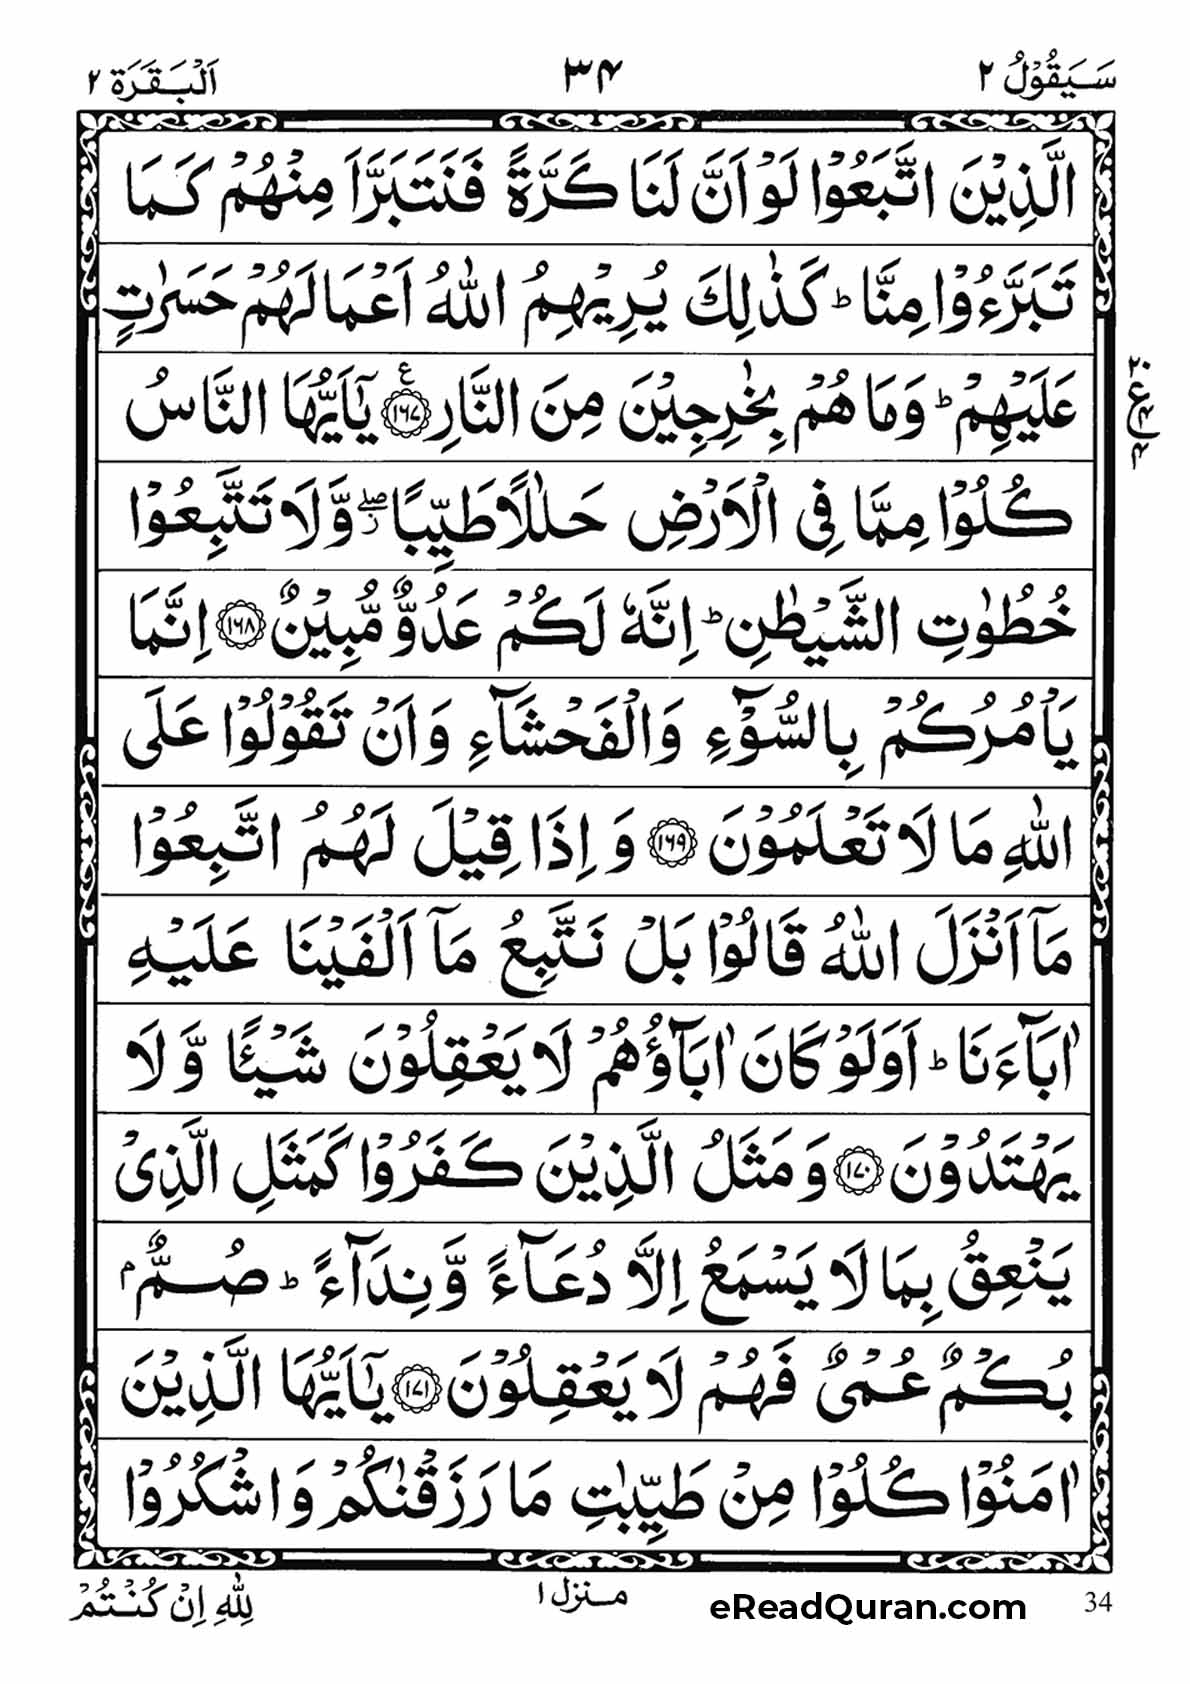 سَيَقُوْلُ ٢ ٣۴ اَلْبَقَرَة ٢
الَّذِيْنَ اتَّبَعُوْا لَوْ اَنَّ لَنَا كَرَّةً فَنَتَبَرَّاَ مِنْهُمْ كَمَا
تَبَرَّءُوْا مِنَّاؕ كَذٰلِكَ يُرِيْهِمُ اللّٰهُ اَعْمَالَهُمْ حَسَرٰتٍ
عَلَيْهِمْؕ وَمَا هُمْ بِخٰرِجِيْنَ مِنَ النَّارِ ع ١٦٧ يٰۤاَيُّهَا النَّاسُ
كُلُوْا مِمَّا فِي الْاَرْضِ حَلٰلًا طَيِّبًا ۖز وَّلَا تَتَّبِعُوْا
خُطُوٰتِ الشَّيْطٰنِؕ اِنَّهٗ لَكُمْ عَدُوٌّ مُّبِيْنٌ ١٦٨ اِنَّمَا
يَاْمُرُكُمْ بِالسُّوْٓءِ وَالْفَحْشَآءِ وَاَنْ تَقُوْلُوْا عَلَى
اللّٰهِ مَا لَا تَعْلَمُوْنَ ١٦٩ وَاِذَا قِيْلَ لَهُمُ اتَّبِعُوْا
مَاۤ اَنْزَلَ اللّٰهُ قَالُوْا بَلْ نَتَّبِعُ مَاۤ اَلْفَيْنَا عَلَيْهِ
اٰبَآءَنَاؕ اَوَلَوْ كَانَ اٰبَآؤُهُمْ لَا يَعْقِلُوْنَ شَيْـًٔا وَّلَا
يَهْتَدُوْنَ ١٧٠ وَمَثَلُ الَّذِيْنَ كَفَرُوْا كَمَثَلِ الَّذِيْ
يَنْعِقُ بِمَا لَا يَسْمَعُ اِلَّا دُعَآءً وَّنِدَآءًؕ صُمٌّۢ
بُكْمٌ عُمْيٌ فَهُمْ لَا يَعْقِلُوْنَ ١٧١ يٰۤاَيُّهَا الَّذِيْنَ
اٰمَنُوْا كُلُوْا مِنْ طَيِّبٰتِ مَا رَزَقْنٰكُمْ وَاشْكُرُوْا
لِلّٰهِ اِنْ كُنْتُمْ
منزل ١
eReadQuran.com
34